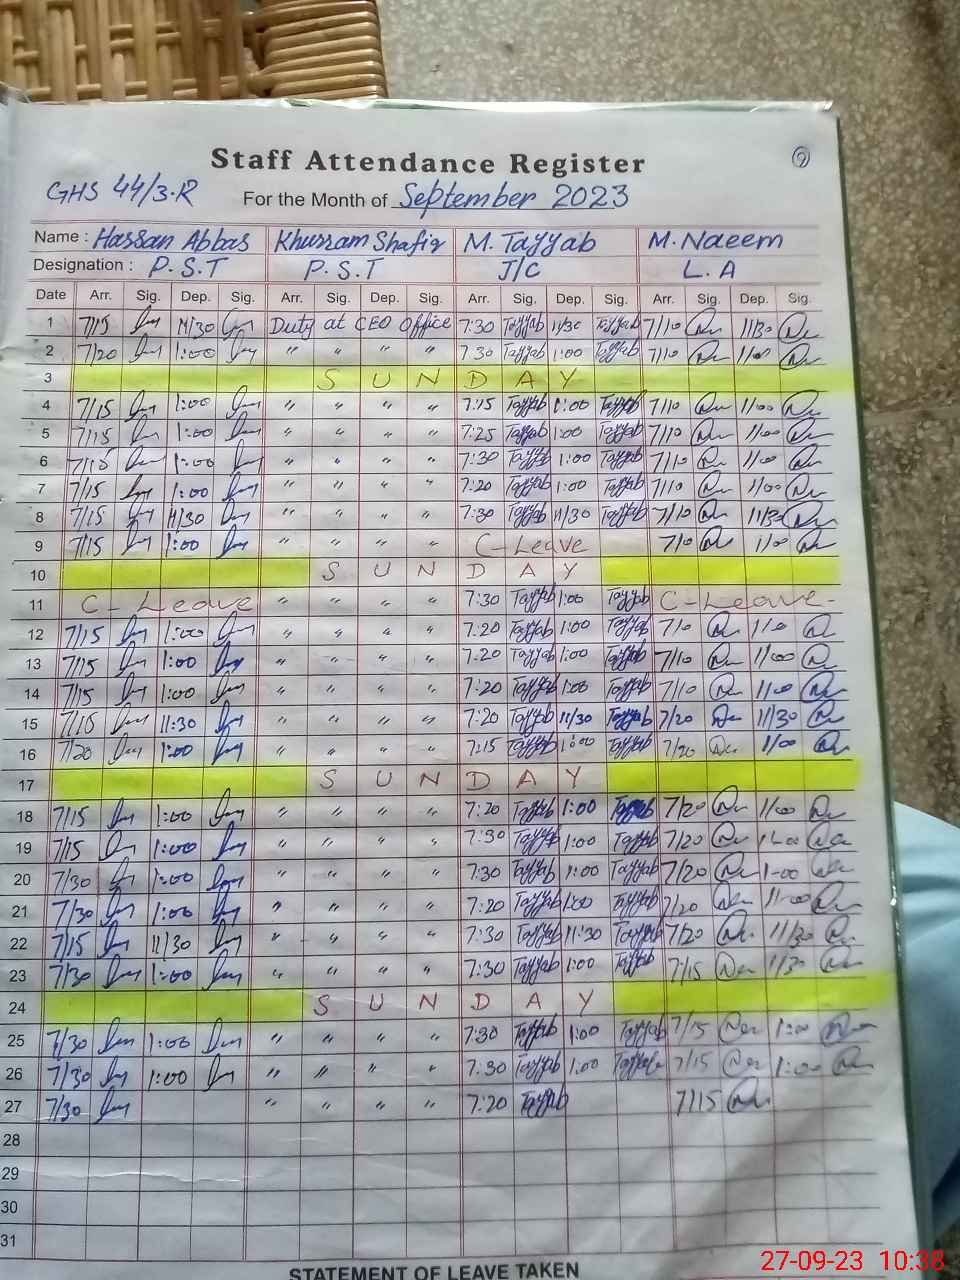 Staff Attendance Register
GHS 44/3.R For the Month of September 2023
Name : Hassan Abbas Khurram Shafiq M. Tayyab M. Naeem
Designation : P.S.T P.S.T J/C L.A
Date Arr. Sig. Dep. Sig. Arr. Sig. Dep. Sig. Arr. Sig. Dep. Sig. Arr. Sig. Dep. Sig.
1 7/15 11/30 Duty at CEO Office 7:30 Tayyab 11/30 Tayyab 7/10 11/30
2 7/20 1:00 " " " " 7:30 Tayyab 1:00 Tayyab 7/10 1/00
3 SUNDAY
4 7/15 1:00 " " " " 7:15 Tayyab 1:00 Tayyab 7/10 1/00
5 7/15 1:00 " " " " 7:25 Tayyab 1:00 Tayyab 7/10 1/00
6 7/15 1:00 " " " " 7:30 Tayyab 1:00 Tayyab 7/10 1/00
7 7/15 1:00 " " " " 7:20 Tayyab 1:00 Tayyab 7/10 1/00
8 7/15 11/30 " " " " 7:30 Tayyab 11/30 Tayyab 7/10 11/30
9 7/15 1:00 " " " " C-Leave 7/10 1/00
10 SUNDAY
11 C-Leave " " " " 7:30 Tayyab 1:00 Tayyab C-Leave-
12 7/15 1:00 " " " " 7:20 Tayyab 1:00 Tayyab 7/10
13 7/15 1:00 " " " " 7:20 Tayyab 1:00 Tayyab 7/10 1/00
14 7/15 1:00 " " " " 7:20 Tayyab 1:00 Tayyab 7/10 1/00
15 7/15 11:30 " " " " 7:20 Tayyab 11/30 Tayyab 7/20 11/30
16 7/20 1:00 " " " " 7:15 Tayyab 1:00 Tayyab 7/20 1/00
17 SUNDAY
18 7/15 1:00 " " " " 7:20 Tayyab 1:00 Tayyab 7/20 1/00
19 7/15 1:00 " " " " 7:30 Tayyab 1:00 Tayyab 7/20
20 7/30 1:00 " " " " 7:30 Tayyab 1:00 Tayyab 7/20 1-00
21 7/30 1:00 " " " " 7:20 Tayyab 1:00 Tayyab 7/20
22 7/15 11/30 " " " " 7:30 Tayyab 11:30 Tayyab 7/20 11/30
23 7/30 1:00 " " " " 7:30 Tayyab 1:00 Tayyab 7/15 1/30
24 SUNDAY
25 7/30 1:00 " " " " 7:30 Tayyab 1:00 Tayyab 7/15 1:00
26 7/30 1:00 " " " " 7:30 Tayyab 1:00 Tayyab 7/15 1:00
27 7/30 " " " " 7:20 Tayyab 7/15
28
29
30
31
STATEMENT OF LEAVE TAKEN
27-09-23 10:38